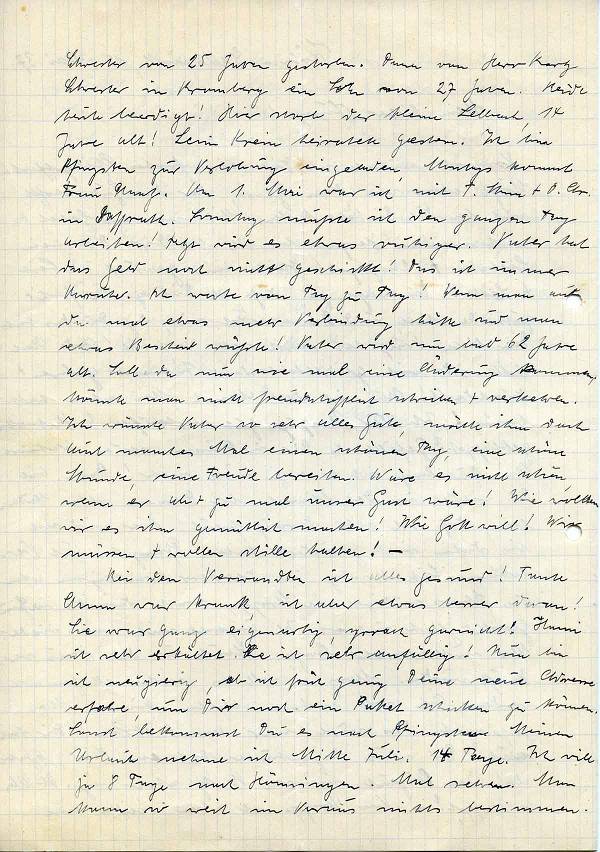 Schwester von 25 Jahren gestorben. Dann von Herr Karg
Schwester in Kronberg ein Sohn von 27 Jahren. Heute
beerdigt! Hier starb der kleine 14
Jahre alt! heiratete gestern. Ich bin
Pfingsten zur Verlobung eingeladen, Montags kommt
Frau Am 1. Mai war ich mit
in Sonntag mußte ich den ganzen Tag
arbeiten! Jetzt wird es etwas ruhiger. Vater hat
das Geld noch nicht geschickt! Das ist immer
Ich warte von Tag zu Tag! Wenn man
da mal etwas mehr Verbindung hätte und man
etwas Bescheid wüßte! Vater wird nun bald 62 Jahre
alt. Soll da nun nie mal eine Änderung kommen,
könnte man nicht freundschaftlich schreiben + verkehren.
Ich wünsche Vater so sehr alles Gute, möchte ihm doch
auch manches Mal einen schönen Tag, eine schöne
Stunde, eine Freude bereiten. Wäre es nicht schön,
wenn er ab + zu mal unser Gast wäre! Wie wollten
wir es ihm gemütlich machen! Wie Gott will! Wir
müssen + wollen stille halten! —
Bei den Verwandten ist alles gesund! Tante
Anna war krank, ist aber etwas besser daran!
Sie war ganz eigenartig, sprach garnicht!
ist sehr erkältet. Sie ist sehr anfällig! Nun bin
ich neugierig, ob ich früh genug Deine neue Adresse
erfahre, um Dir noch ein Paket schicken zu können.
Sonst bekommst Du es nach Pfingsten. Meinen
Urlaub nehme ich Mitte Juli. 14 Tage. Ich will
ja 8 Tage nach Hönningen. Mal sehen. Man
kann so weit im Voraus nichts bestimmen.